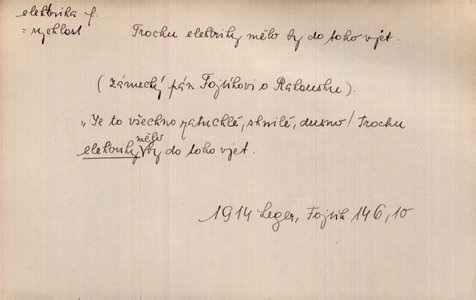 elektrika f.
= rychlost
Trochu elektriky mělo by do toho vjet.
(Zámecký pán Fojtíkovi o Rakousku).
„Je to všechno zatuchlé, shnilé, dusno! Trochu
elektriky mělo by do toho vjet.
1914 Leger, Fojtík 146, 10